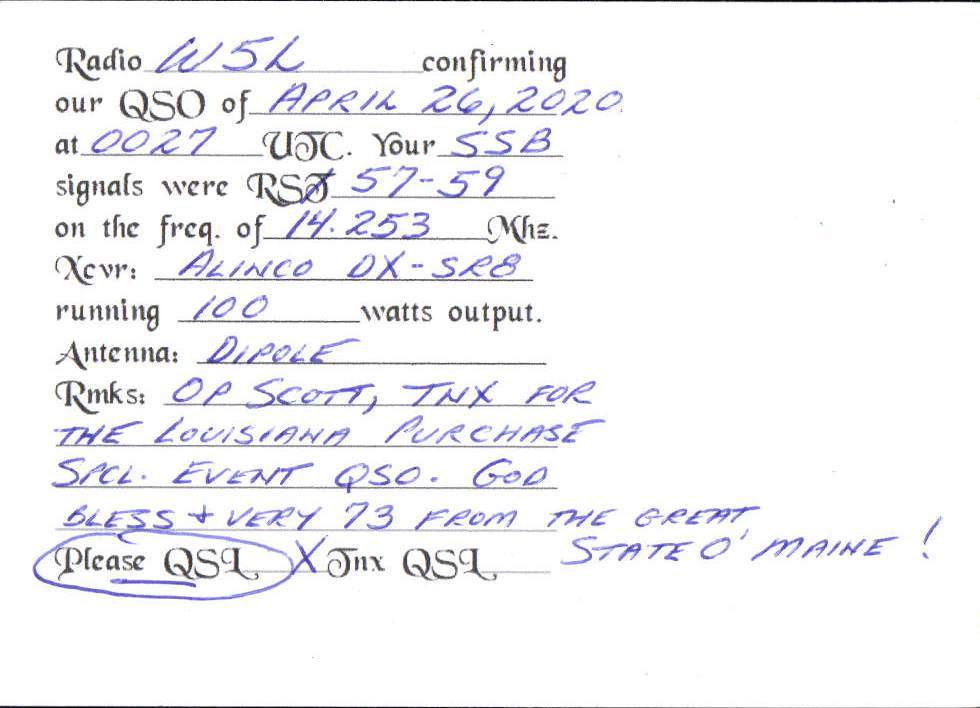 Radio W5L confirming
our QSO of APRIL 26, 2020
at 0027 UTC. Your SSB
signals were RST 57-59
on the freq. of 14.253 Mhz.
Xcvr: ALINCO DX-SR8
running 100 watts output.
Antenna: DIPOLE
Rmks: OP SCOTT, TNX FOR
THE LOUISIANA PURCHASE
SPCL. EVENT QSO. GOD
BLESS + VERY 73 FROM THE GREAT
STATE O' MAINE !
Please QSL X Tnx QSL